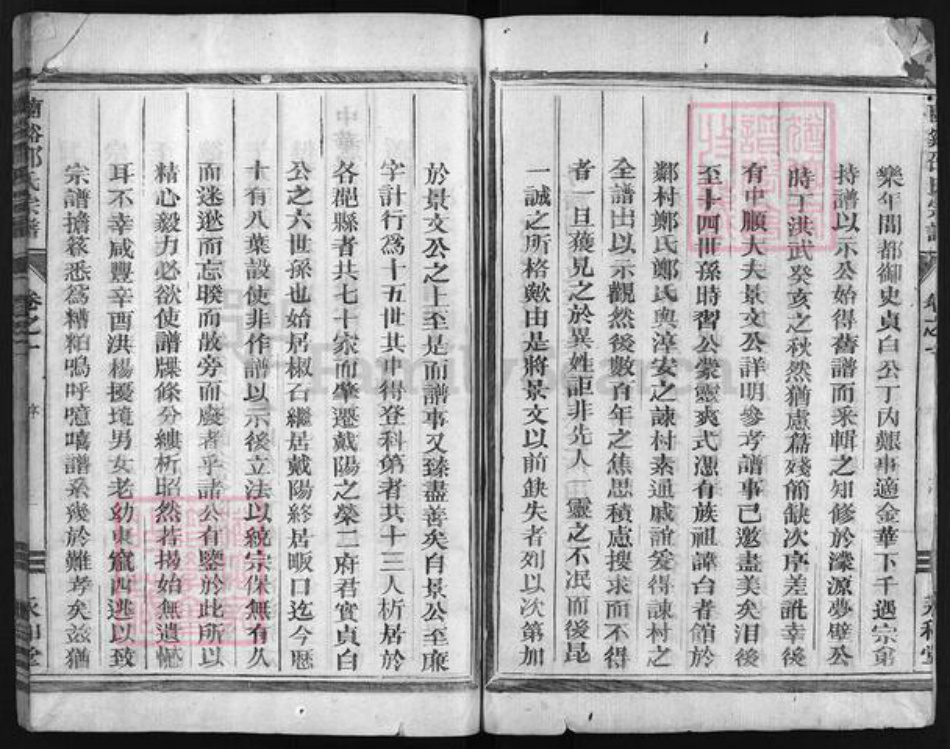 樂年間都御史貞白公丁內艱事適金華下千遇宗弟
持譜以示公始得舊譜而采輯之知修於濼源夢壁公
時丁洪武癸亥之秋然猶慮篇殘簡缺次序差訛幸後
有中順大夫景文公詳明參考譜事已邀盡美矣洎後
至十四世孫時習公蒙靈爽式憑有族祖諱台者館於
鄰村鄭氏鄭氏與淳安之諫村素通戚誼爰得諫村之
全譜出以示觀然後數百年之焦思積慮搜求而不得
者一旦獲見之於異姓詎非先人一靈之不泯而後昆
一誠之所格歟由是將景文以前缺失者列以次第加
於景文公之上至是而譜事又臻盡善矣自景公至廉
字計行為十五世其中得登科第者共十三人析居於
各郡縣者共七十家而肇遷戴陽之榮二府君實貞白
公之六世孫也始居椒石繼居戴陽終居畈口迄今歷
十有八葉設使非作譜以示後立法以統宗保無有久
而迷遜而忘睽而散旁而廢者乎諸公有鑒於此所以
精心毅力必欲使譜牒條分縷析昭然若揭始無遺憾
耳不幸咸豐辛酉洪楊擾境男女老幼東竄西逃以致
宗譜擔簽悉為糟粕嗚呼噫嘻譜系幾於難考矣茲猶
蘭谿邵氏宗譜
卷之一
序
永和堂